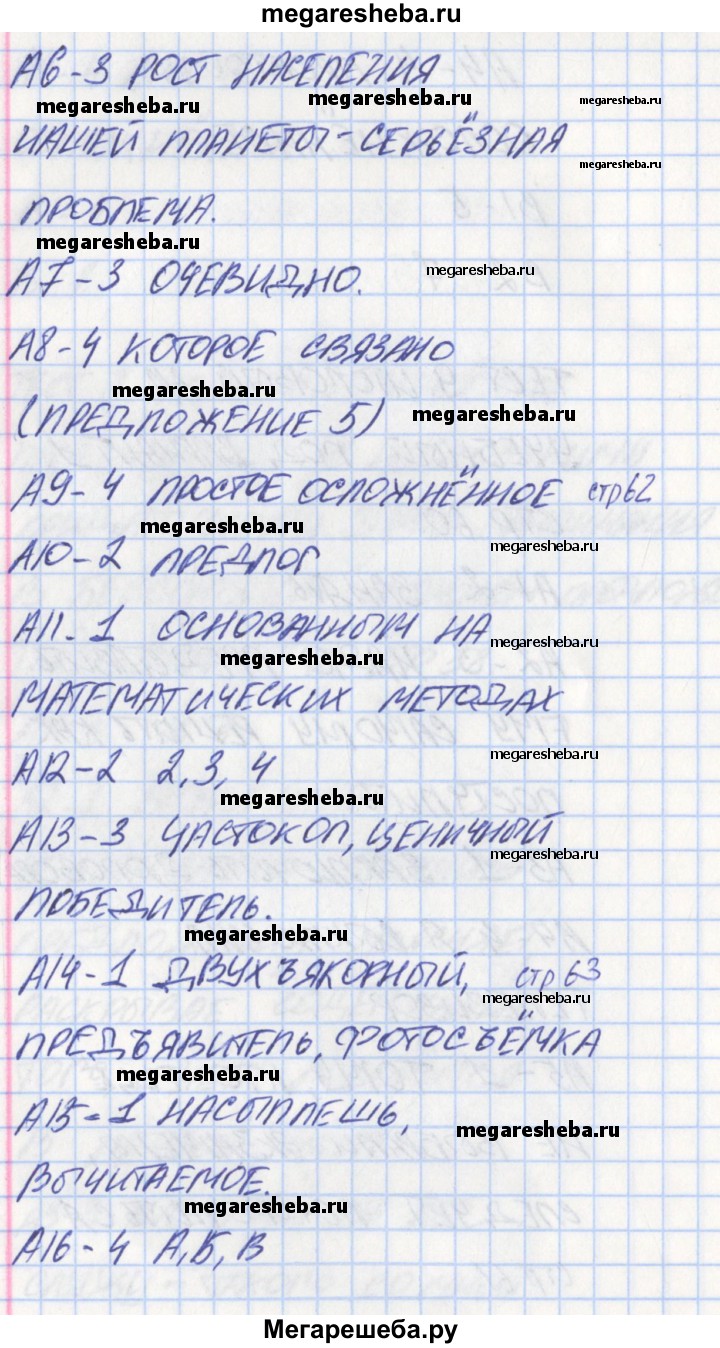 megaresheba.ru
А6-3 РОСТ НАСЕЛЕНИЯ
megaresheba.ru megaresheba.ru megaresheba.ru
НАШЕЙ ПЛАНЕТЫ-СЕРЬЁЗНАЯ
megaresheba.ru
ПРОБЛЕМА.
megaresheba.ru
А7-3 ОЧЕВИДНО.
megaresheba.ru
А8-4 КОТОРОЕ СВЯЗАНО
megaresheba.ru
(ПРЕДЛОЖЕНИЕ 5)
megaresheba.ru
А9-4 ПРОСТОЕ ОСЛОЖНЁННОЕ стр62
megaresheba.ru
А10-2 ПРЕДЛОГ
megaresheba.ru
А11-1 ОСНОВАННЫМ НА
megaresheba.ru
megaresheba.ru
МАТЕМАТИЧЕСКИХ МЕТОДАХ
А12-2 2,3,4
megaresheba.ru
А13-3 ЧАСТОКОЛ, ЦЕНИЧНЫЙ
megaresheba.ru
ПОБЕДИТЕЛЬ.
megaresheba.ru
А14-1 ДВУХЪЯКОРНЫЙ, стр63
megaresheba.ru
ПРЕДЪЯВИТЕЛЬ, ФОТОСЪЁМКА
megaresheba.ru
А15-1 НАСЫПЛЕШЬ,
megaresheba.ru
ВЫЧИТАЕМОЕ.
megaresheba.ru
А16-4 А,Б,В
Мегарешеба.ру